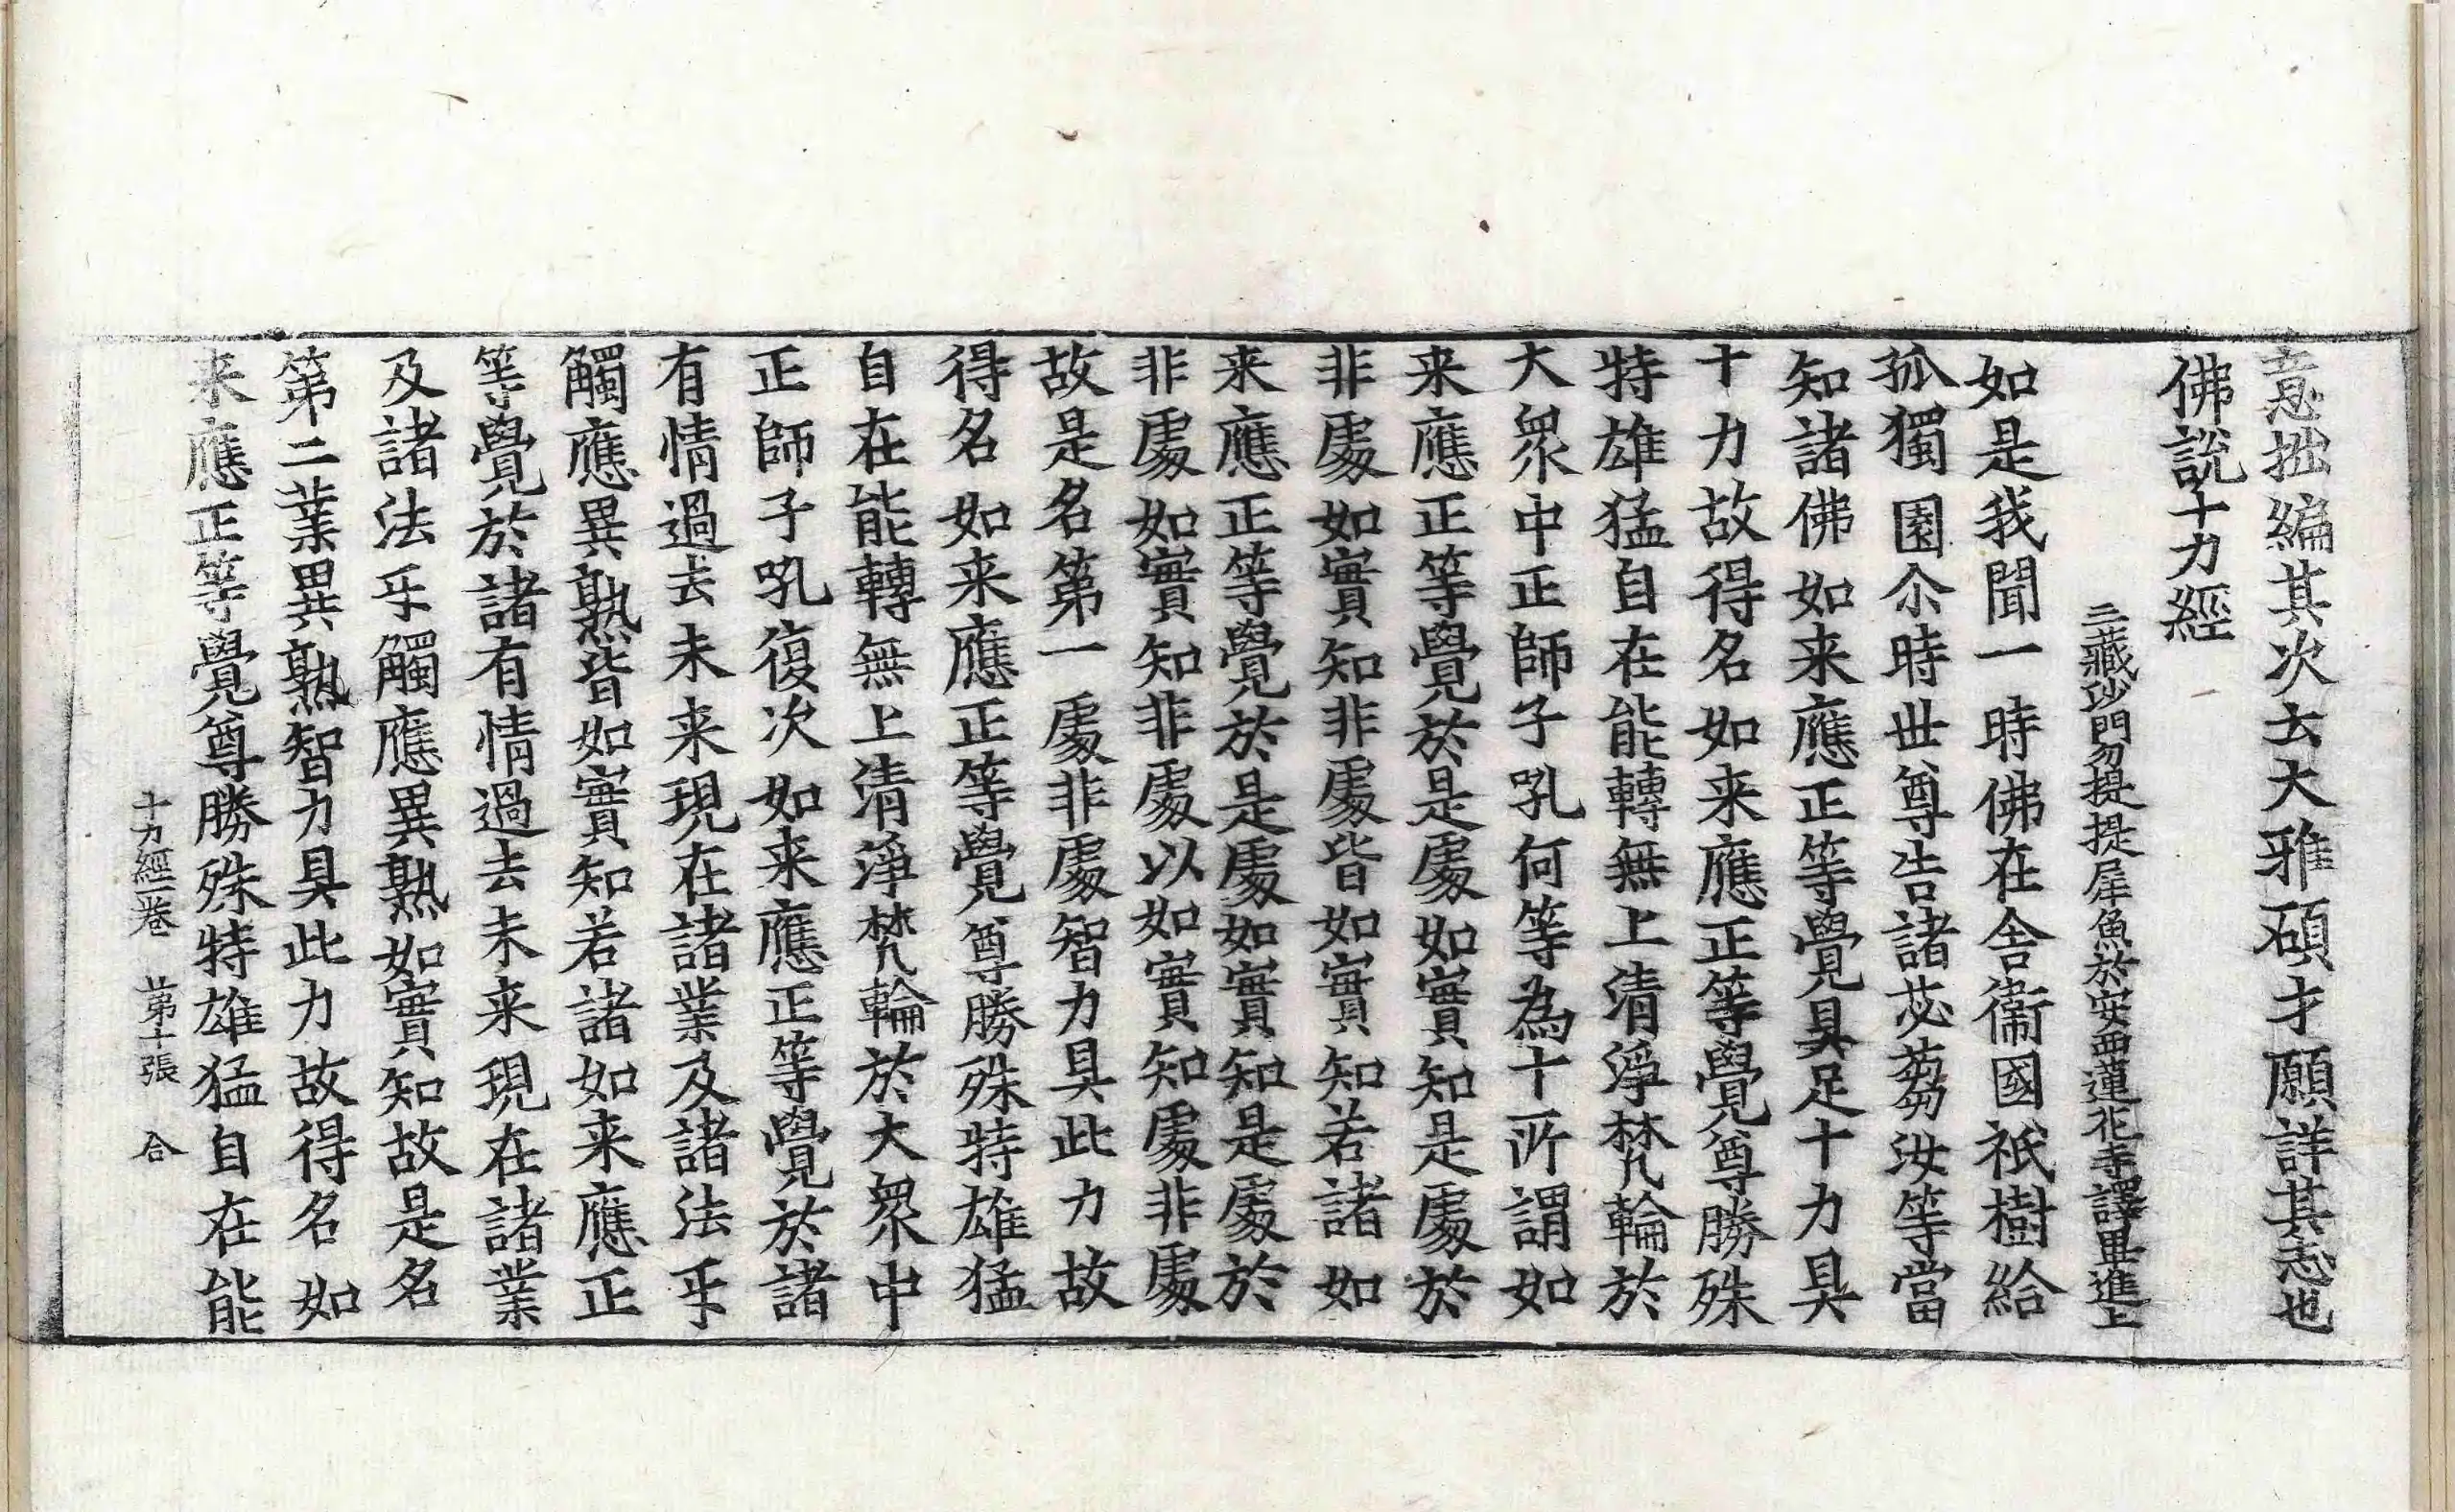 意拙編其次云大雅碩才願詳其志也
佛說十力經
三藏沙門勿提提犀魚於安西蓮花寺譯畢進上
如是我聞一時佛在舍衞國祇樹給
孤獨園尒時世尊告諸苾蒭汝等當
知諸佛如来應正等覺具足十力具
十力故得名如来應正等覺尊勝殊
特雄猛自在能轉無上清淨梵輪於
大衆中正師子吼何等為十所謂如
来應正等覺於是處如實知是處於
非處如實知非處皆如實知若諸如
来應正等覺於是處如實知是處於
非處如實知非處以如實知處非處
故是名第一處非處智力具此力故
得名如来應正等覺尊勝殊特雄猛
自在能轉無上清淨梵輪於大衆中
正師子吼復次如来應正等覺於諸
有情過去未来現在諸業及諸法㸦
觸應異熟皆如實知若諸如来應正
等覺於諸有情過去未来現在諸業
及諸法㸦觸應異熟如實知故是名
第二業異熟智力具此力故得名如
来應正等覺尊勝殊特雄猛自在能
十力經一卷　第十張　合